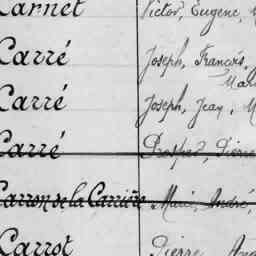 Carnet Victor, Eugène,
Carré Joseph, François,
Carré Joseph, Jean, M
Carré Prosper, Pierre
Carron de la Carrière, Marie, André,
Carrot Pierre